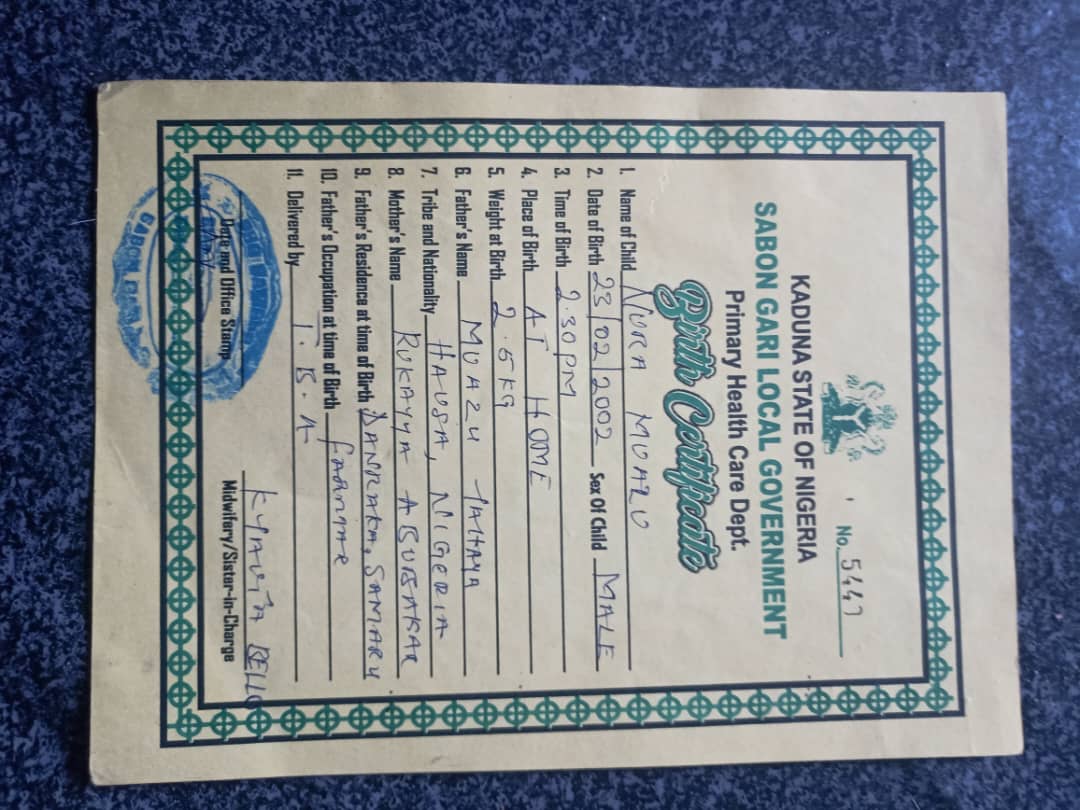 No. 5447
KADUNA STATE OF NIGERIA
SABON GARI LOCAL GOVERNMENT
Primary Health Care Dept.
Birth Certificate
1. Name of Child NURA MUAZU
2. Date of Birth 23/02/2002 Sex Of Child MALE
3. Time of Birth 2.30PM
4. Place of Birth AT HOME
5. Weight at Birth 2.5KG
6. Father's Name MUAZU YAHAYA
7. Tribe and Nationality HAUSA, NIGERIA
8. Mother's Name RUKAYYA ABUBAKAR
9. Father's Residence at time of Birth DANRAKA, SAMARU
10. Father's Occupation at time of Birth FARMER
11. Delivered by T.B.A
BELLO
Date and Office Stamp
Midwifery/Sister-in-Charge
SABON GARI